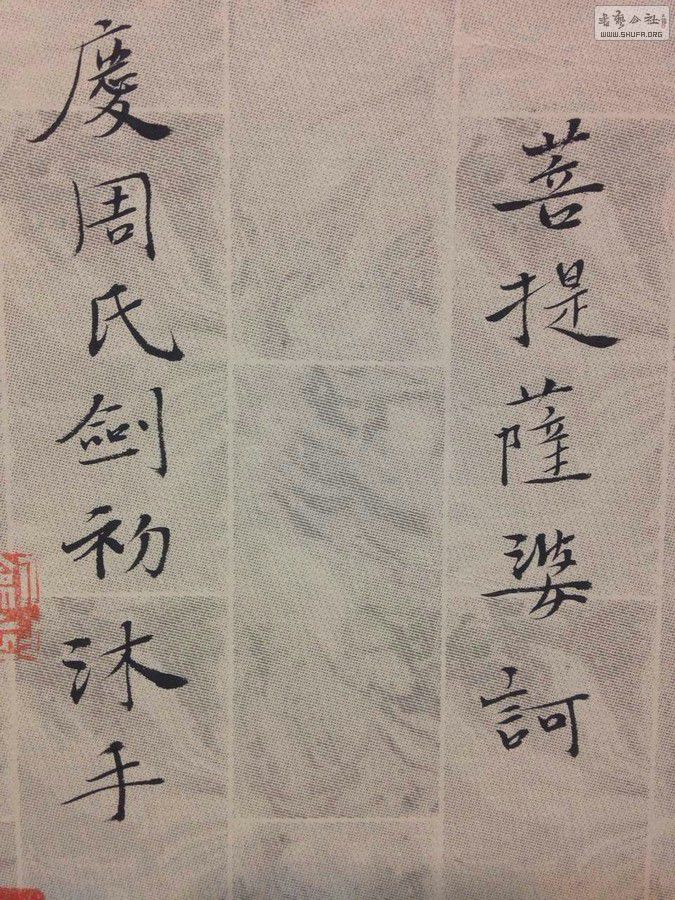 菩提薩婆訶
慶周氏劍初沐手
书艺公社
WWW.SHUFA.ORG